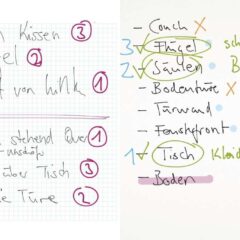 Kissen 3
2
t von links 1
stehend Quer 1
über Tisch 3
ie Türe 2
– Couch X
3 Flügel sch
2 Säulen B
– Bodentüre X
– Türwand
– Fensterfront B
1 Tisch Kleid
– Boden